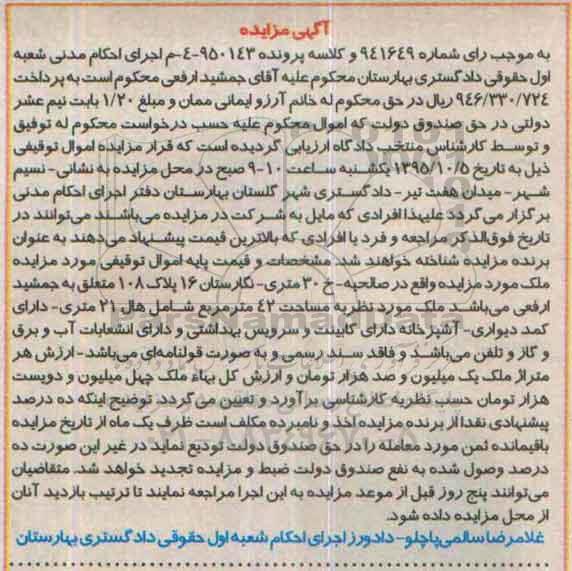 آگهی مزایده
به موجب رای شماره ۹۴۱۶۴۹ و کلاسه پرونده ۹۵۰۱۴۳-۴-م اجرای احکام مدنی شعبه
اول حقوقی دادگستری بهارستان محکوم علیه آقای جمشید ارفعی محکوم است به پرداخت
۹۴۶/۳۳۰/۷۲۴ ریال در حق محکوم له خانم آرزو ایمانی ممان و مبلغ ۱/۲۰ بابت نیم عشر
دولتی در حق صندوق دولت که اموال محکوم علیه حسب درخواست محکوم له توقیف
و توسط کارشناس منتخب دادگاه ارزیابی گردیده است که قرار مزایده اموال توقیفی
ذیل به تاریخ ۱۳۹۵/۱۰/۵ یکشنبه ساعت ۱۰-۹ صبح در محل مزایده به نشانی- نسیم
شهر- میدان هفت تیر- دادگستری شهر گلستان بهارستان دفتر اجرای احکام مدنی
برگزار می‌گردد علیهذا افرادی که مایل به شرکت در مزایده می‌باشند می‌توانند در
تاریخ فوق‌الذکر مراجعه و فرد یا افرادی که بالاترین قیمت پیشنهاد می‌دهند به عنوان
برنده مزایده شناخته خواهند شد. مشخصات و قیمت پایه اموال توقیفی مورد مزایده
ملک مورد مزایده واقع در صالحیه- خ ۳۰ متری- نگارستان ۱۶ پلاک ۱۰۸ متعلق به جمشید
ارفعی می‌باشد ملک مورد نظر به مساحت ۴۲ مترمربع شامل هال ۲۱ متری- دارای
کمد دیواری- آشپزخانه دارای کابینت و سرویس بهداشتی و دارای انشعابات آب و برق
و گاز و تلفن می‌باشد و فاقد سند رسمی و به صورت قولنامه‌ای می‌باشد- ارزش هر
متراژ ملک یک میلیون و صد هزار تومان و ارزش کل بهاء ملک چهل میلیون و دویست
هزار تومان حسب نظریه کارشناس برآورد و تعیین می‌گردد. توضیح اینکه ده درصد
پیشنهادی نقدا از برنده مزایده اخذ و نامبرده مکلف است ظرف یک ماه از تاریخ مزایده
باقیمانده ثمن مورد معامله را در حق صندوق دولت تودیع نماید در غیر این صورت ده
درصد وصول شده به نفع صندوق دولت ضبط و مزایده تجدید خواهد شد. متقاضیان
می‌توانند پنج روز قبل از موعد مزایده به این اجرا مراجعه نمایند تا ترتیب بازدید آنان
از محل مزایده داده شود.
غلامرضا سالمی‌پاچلو- دادورز اجرای احکام شعبه اول حقوقی دادگستری بهارستان